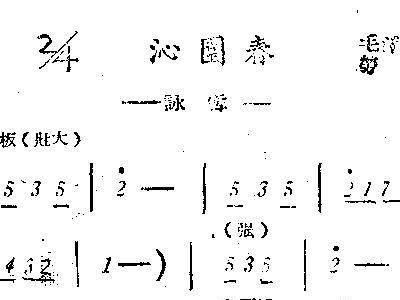 2/4 沁園春 毛澤
—詠雪—
板(壯大)
5 3 5 | 2 — | 5 3 5 | 2 1 7
(强)
4 3 2 | 1 — ) | 5 3 5 | 2 —